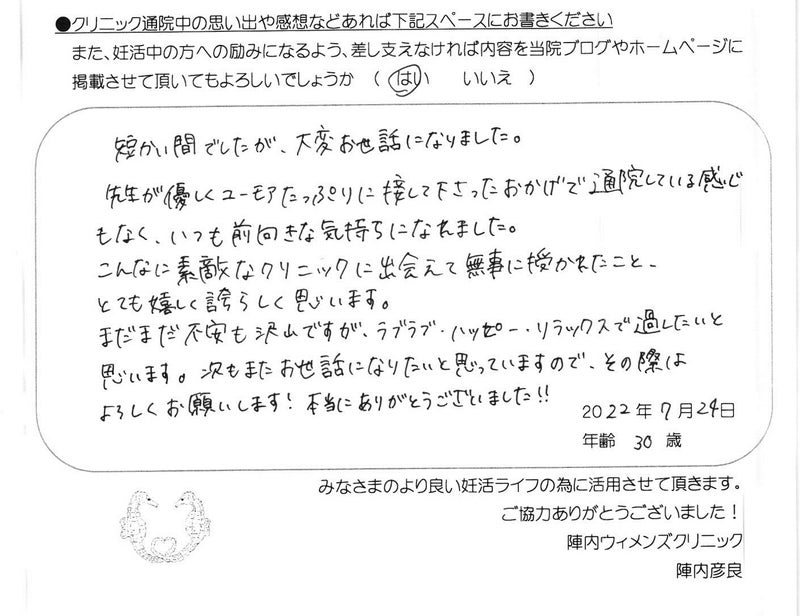 ●クリニック通院中の思い出や感想などあれば下記スペースにお書きください
また、妊活中の方への励みになるよう、差し支えなければ内容を当院ブログやホームページに
掲載させて頂いてもよろしいでしょうか （ はい いいえ ）
短かい間でしたが、大変お世話になりました。
先生が優しくユーモアたっぷりに接して下さったおかげで通院している感じ
もなく、いつも前向きな気持ちになれました。
こんなに素敵なクリニックに出会えて無事に授かれたこと、
とても嬉しく誇らしく思います。
まだまだ不安も沢山ですが、ラブラブ・ハッピー・リラックスで過したいと
思います。次もまたお世話になりたいと思っていますので、その際は
よろしくお願いします！本当にありがとうございました!!
2022年7月24日
年齢 30 歳
みなさまのより良い妊活ライフの為に活用させて頂きます。
ご協力ありがとうございました！
陣内ウィメンズクリニック
陣内彦良